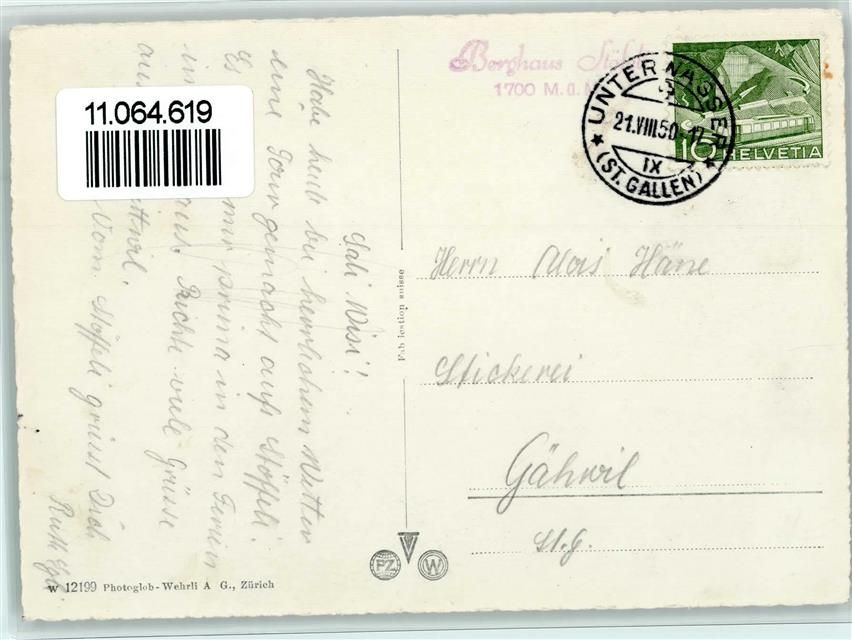 11.064.619
Berghaus
1700 M.ü.M
UNTERWASSER
21.VIII.50-17
IX
(ST. GALLEN)
10 HELVETIA
Sali Wisi!
Habe heute bei herrlichem Wetter
eine Tour gemacht aufs Stöffeli.
Es mir prima in den Ferien
in aus. Richte viele Grüsse
aus
Vom Stöffeli grüsst Dich
Ruth
Herrn Alois Häne
Stickerei
Gähwil
St.G.
Fabrication suisse
PZ W
W 12199 Photoglob-Wehrli A G., Zürich